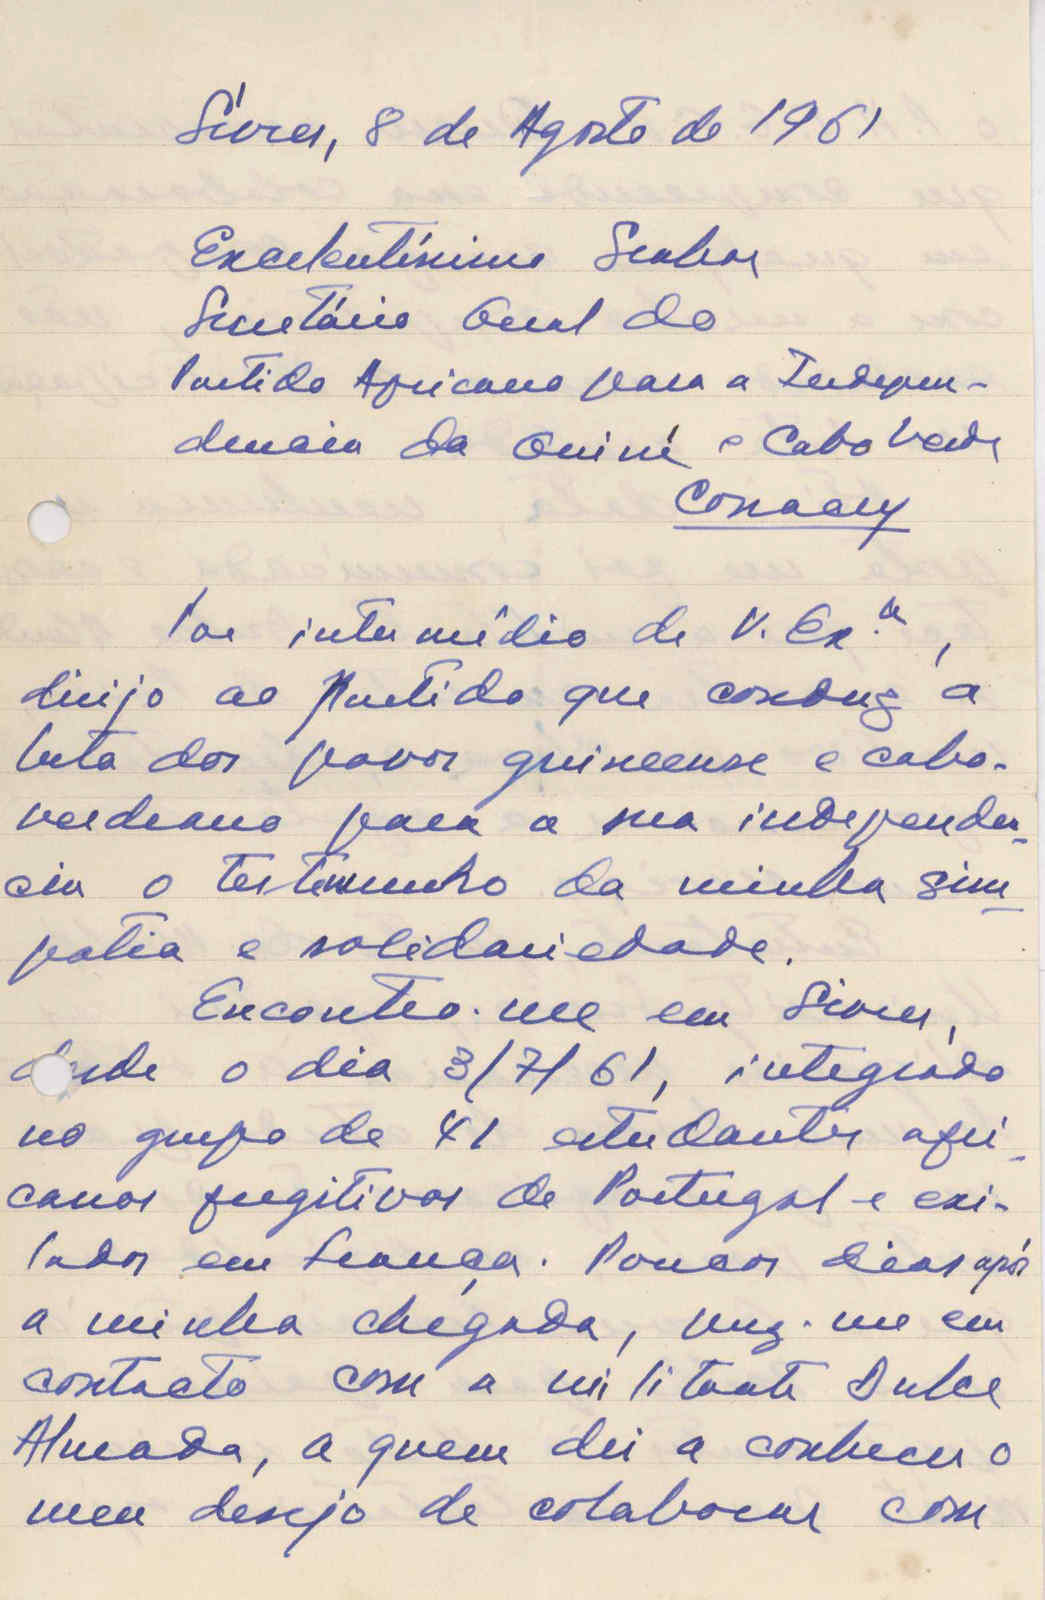 Sèvres, 8 de Agosto de 1961
Excelentíssimo Senhor
Secretário Geral do
Partido Africano para a Indepen-
dencia da Guiné e Cabo Verde
Conacry
Por intermédio de V. Ex.ª,
dirijo ao Partido que conduz a
luta dos povos guineense e cabo-
verdeano para a sua independen-
cia o testemunho da minha sim-
patia e solidariedade.
Encontro-me em Sèvres,
desde o dia 3/7/61, integrado
no grupo de 41 estudantes afri-
canos fugitivos de Portugal e exi-
lados em França. Poucos dias após
a minha chegada, puz-me em
contacto com a militante Dulce
Almada, a quem dei a conhecer o
meu desejo de colaborar com